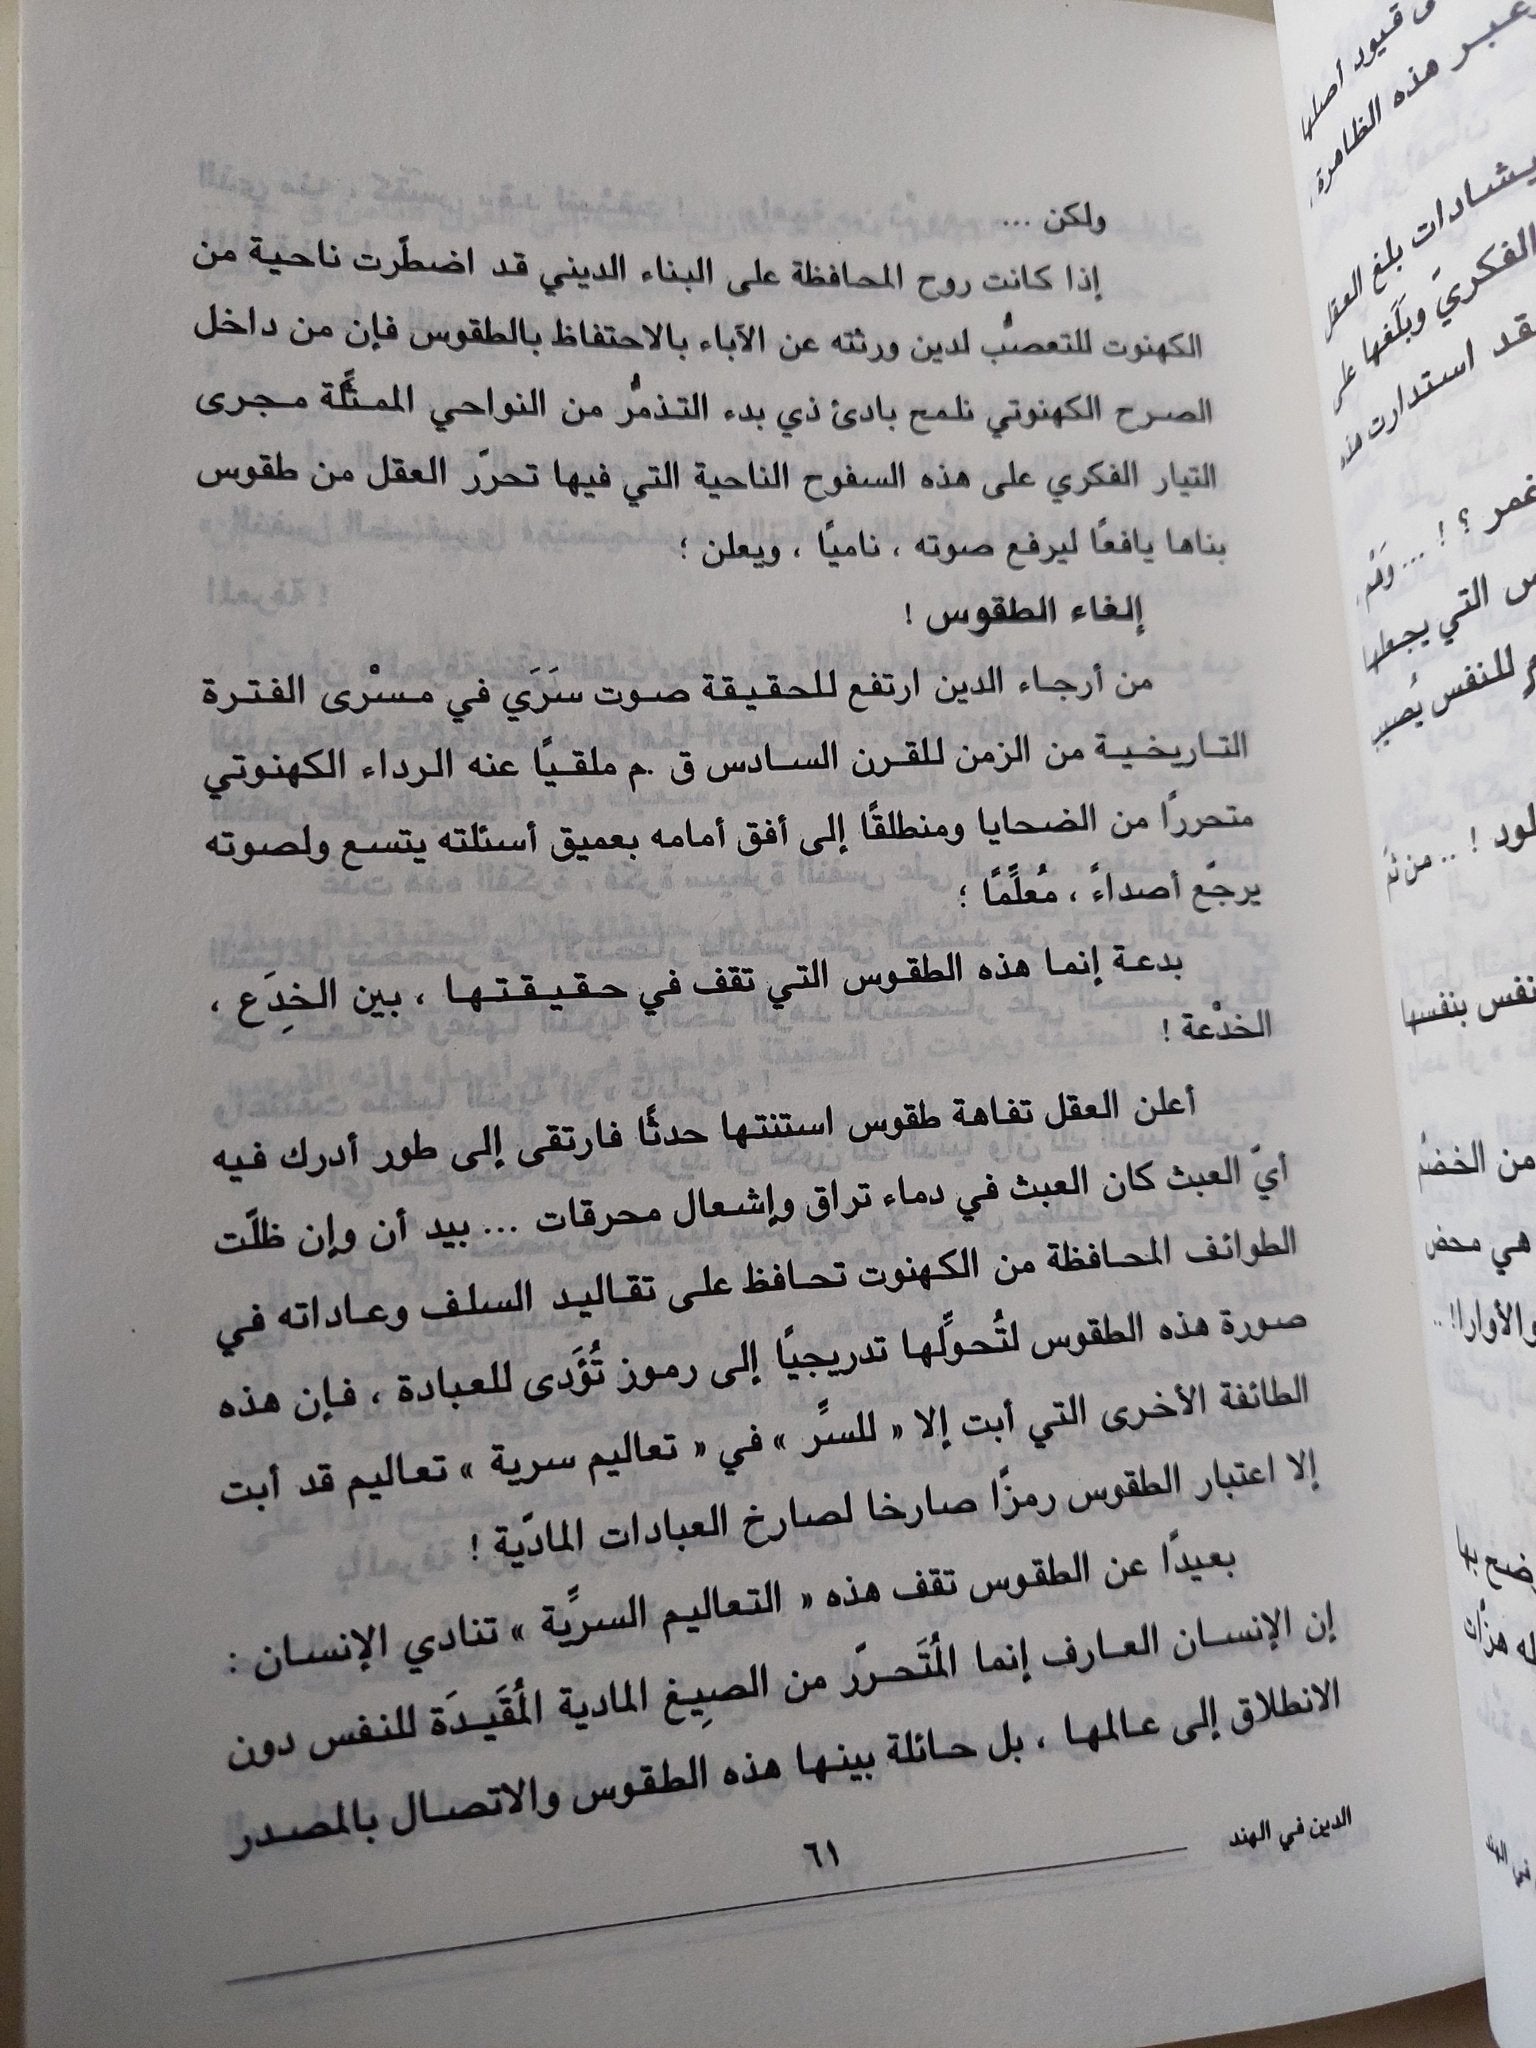 ولكن ...
إذا كانت روح المحافظة على البناء الديني قد اضطرّت ناحية من
الكهنوت للتعصُّب لدين ورثته عن الآباء بالاحتفاظ بالطقوس فإن من داخل
الصرح الكهنوتي نلمح بادئ ذي بدء التذمُّر من النواحي الممثِّلة مجرى
التيار الفكري على هذه السفوح الناحية التي فيها تحرّر العقل من طقوس
بناها يافعًا ليرفع صوته ، ناميًا ، ويعلن ؛
إلغاء الطقوس !
من أرجاء الدين ارتفع للحقيقة صوت سَرَي في مسْرى الفترة
التاريخية من الزمن للقرن السادس ق .م ملقيًا عنه الرداء الكهنوتي
متحررًا من الضحايا ومنطلقًا إلى أفق أمامه بعميق أسئلته يتسع ولصوته
يرجّع أصداءً ، مُعلِّمًا ؛
بدعة إنما هذه الطقوس التي تقف في حقيقتها ، بين الخدِع ،
الخدْعة !
أعلن العقل تفاهة طقوس استنتها حدثًا فارتقى إلى طور أدرك فيه
أيّ العبث كان العبث في دماء تراق وإشعال محرقات ... بيد أن وإن ظلّت
الطوائف المحافظة من الكهنوت تحافظ على تقاليد السلف وعاداته في
صورة هذه الطقوس لتُحوِّلها تدريجيًا إلى رموز تُؤَدى للعبادة ، فإن هذه
الطائفة الأخرى التي أبت إلا « للسرِّ » في « تعاليم سرية » تعاليم قد أبت
إلا اعتبار الطقوس رمزًا صارخا لصارخ العبادات المادّية !
بعيدًا عن الطقوس تقف هذه « التعاليم السريِّة » تنادي الإنسان :
إن الإنسان العارف إنما المُتَحرّر من الصيِغ المادية المُقَيدَة للنفس دون
الانطلاق إلى عالمها ، بل حائلة بينها هذه الطقوس والاتصال بالمصدر
الدين في الهند
٦١
قيود أصلها
هذه الظاهرة
يشادات بلغ العقل
الفكريّ وبَلَغها على
استدارت هذه
؟ ! ...
التي يجعلها
للنفس يُصيب
! .. من ثمّ
بنفسها
من الخضم
هي محض
والأوارا! ..
بها
هزّات